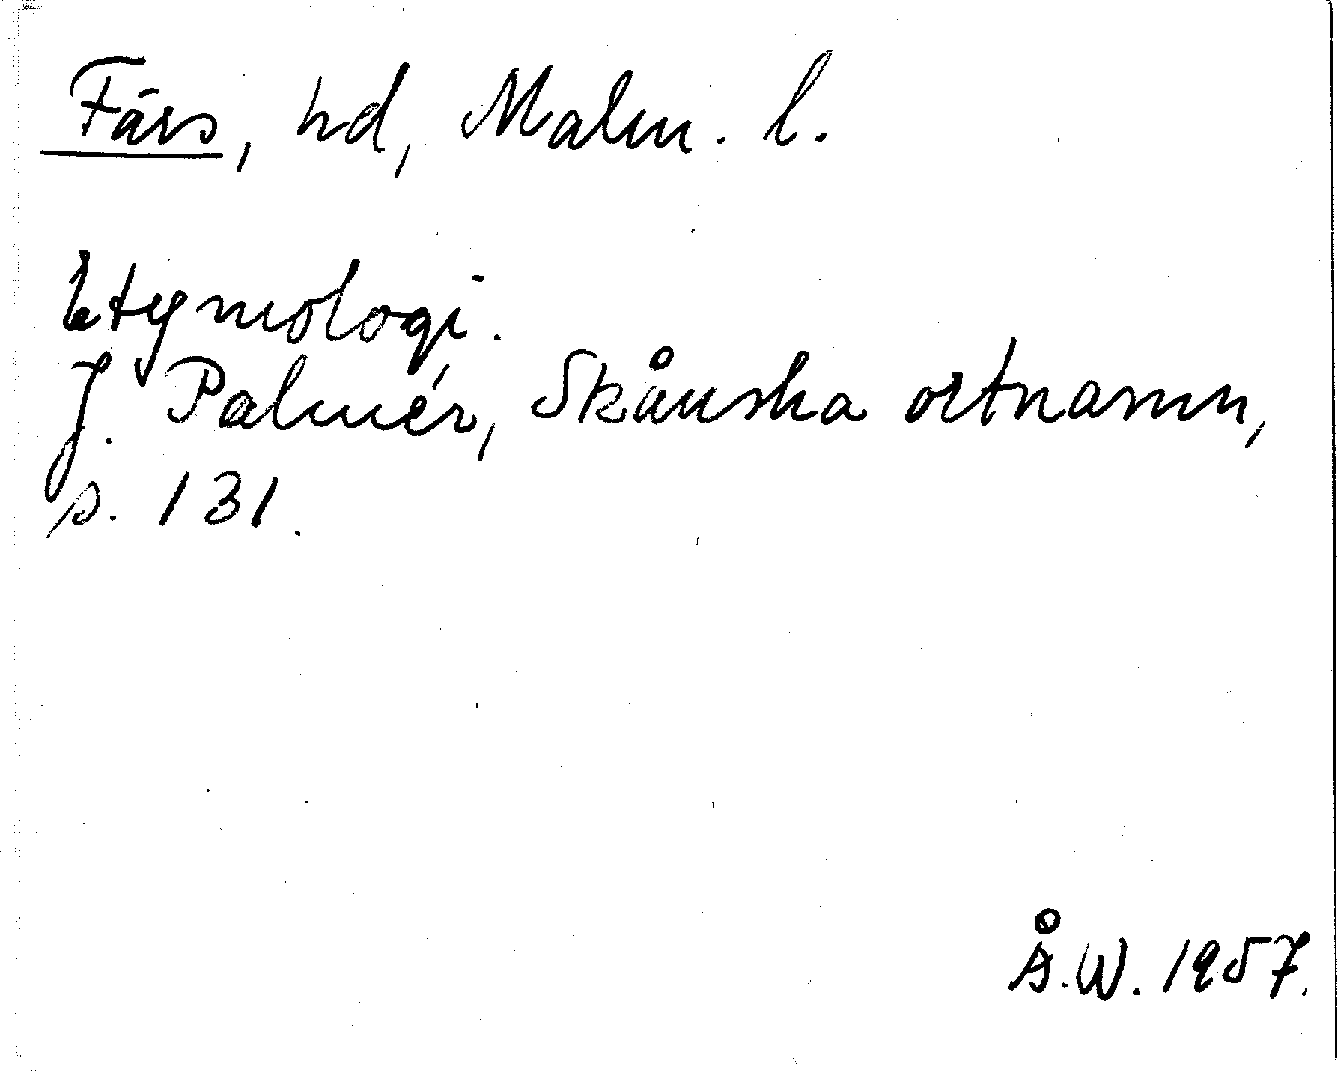 Färs, hd, Malm. l.
Etymologi.
J. Palmér, Skånska ortnamn,
s. 131.
Å.W. 1957.